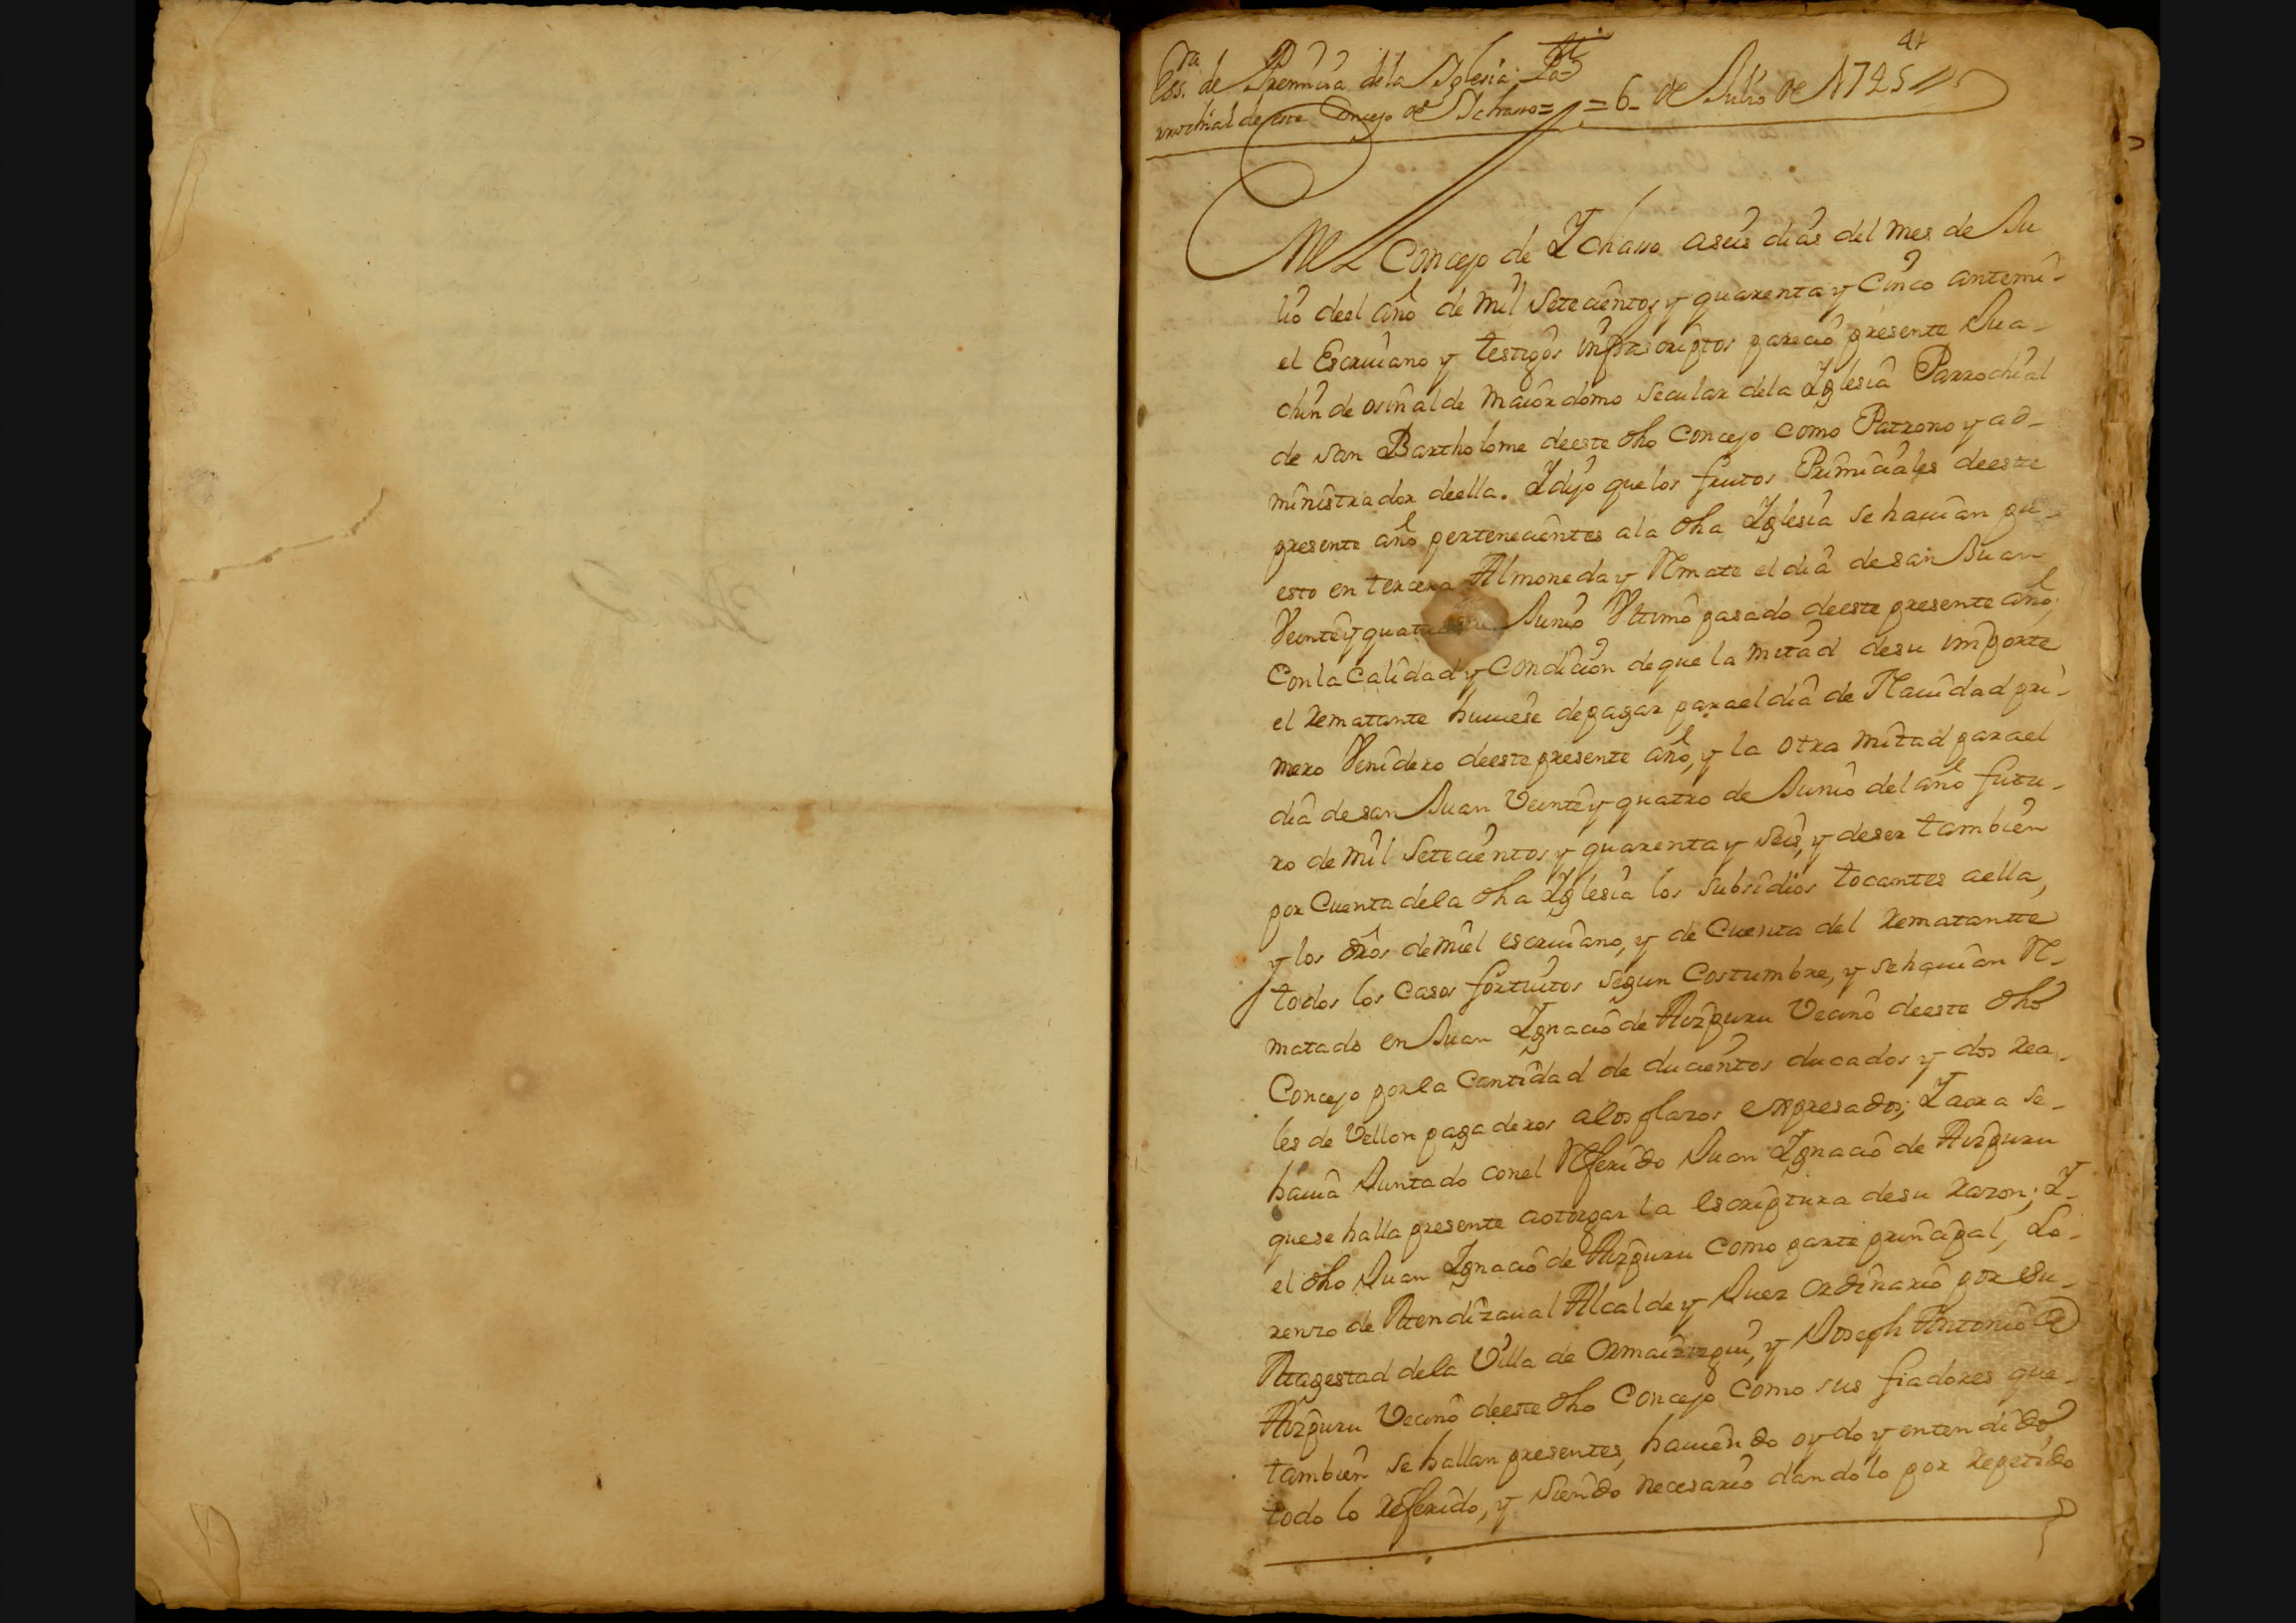 41
Ess.ra de Premicia dela Iglesia Pa
rrochial de este Concejo de Ichasso = = 6 de Julio de 1745
En el Concejo de Ichasso a seis dias del mes de Ju
lio deel año de mil setecientos y quarenta y cinco antemi
el Escriuano y testigos infrascriptos parecio presente Jua-
chin de osinalde maiordomo secular dela Iglesia Parrochial
de san Bartholome deeste dho Concejo como Patrono y ad-
ministrador deella. Y dijo que los frutos Primiciales deeste
presente año pertenecientes ala dha Iglesia se hauian pu-
esto en tercera Almoneda y Remate el dia de san Juan
Veinte y quatro de Junio Vltimo pasado deeste presente año,
Con la Calidad y Condicion de que la mitad desu importe
el rematante huuiese de pagar para el dia de Nauidad pri-
mero Venidero deeste presente año, y la otra mitad para el
dia de san Juan Veinte y quatro de Junio del año futu-
ro de mil setecientos y quarenta y seis, y de ser tambien
por Cuenta dela dha Iglesia los subsidios tocantes aella,
y los dros de miel escriuano, y de Cuenta del rematantte
todos los Casos fortuitos segun Costumbre, y se hauian Re-
matado en Juan Ignacio de Aizpuru Vecino deeste dho
Concejo por la Cantidad de ducientos ducados y dos rea-
les de Vellon pagaderos alos plazos expresados; Y aora se
hauia Juntado con el Referido Juan Ignacio de Aizpuru
que se halla presente aotorgar la escriptura desu razon; Y
el dho Juan Ignacio de Aizpuru Como parte principal, Lo-
renzo de Mendizaual Alcalde y Juez ordinario por su
Magestad dela Villa de Ormaiztegui, y Joseph Antonio de
Aizpuru Vecino deeste dho Concejo Como sus fiadores que
tambien se hallan presentes, hauiendo oydo y entendido
todo lo referido, y siendo necesario dandolo por repetido